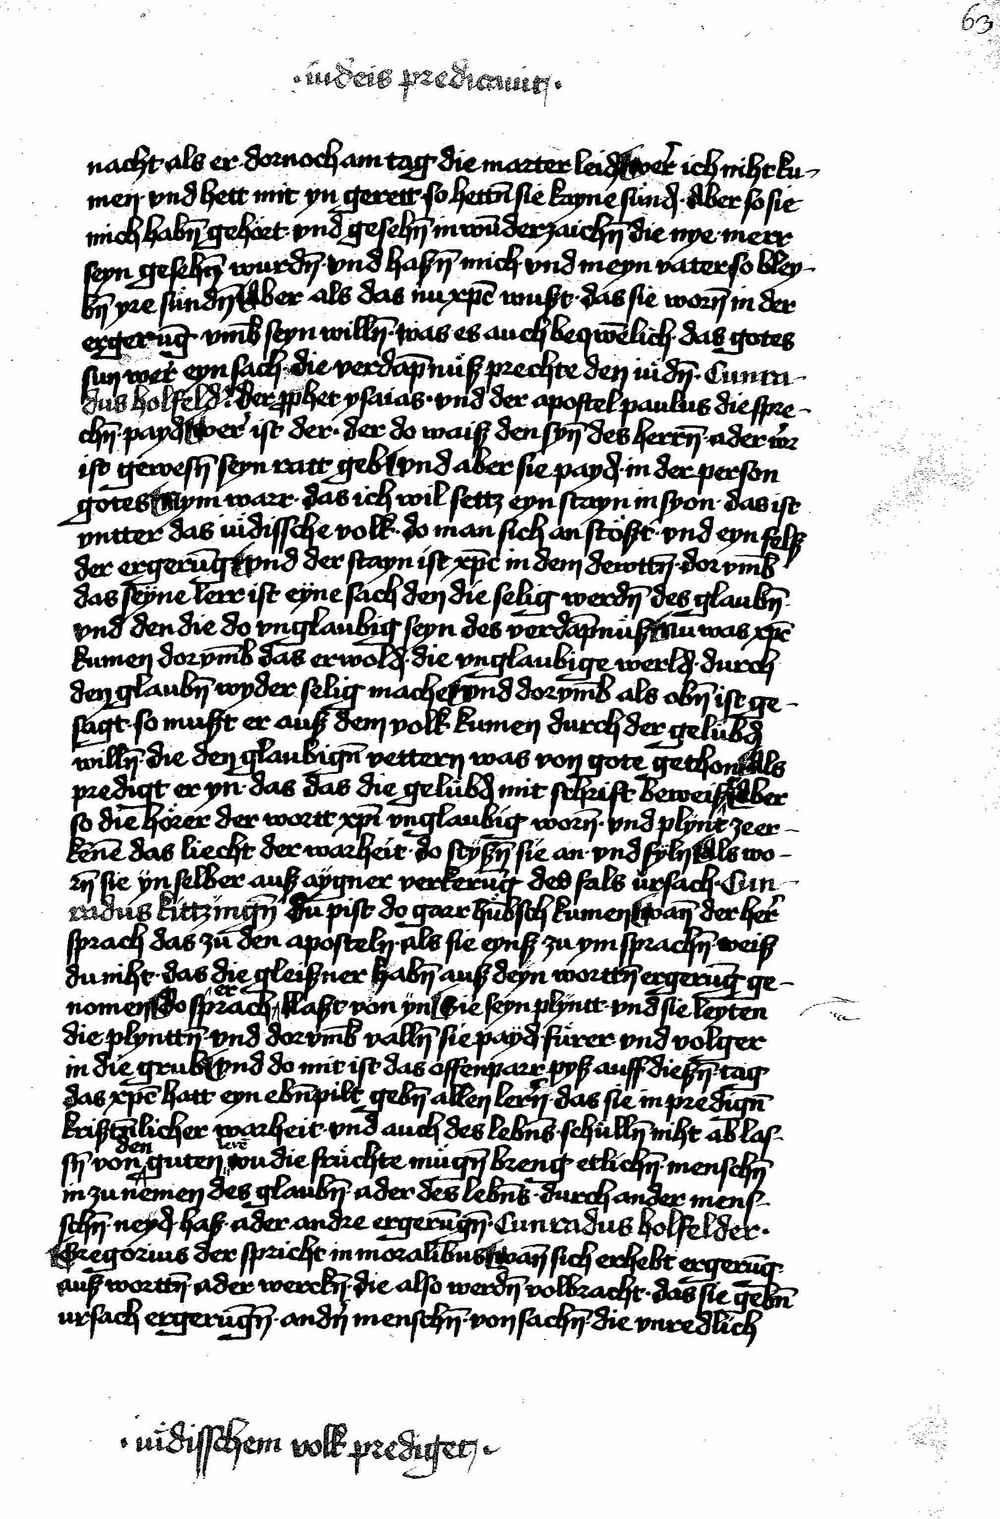 63
· iudeis predicauit ·
nacht · als er · dornoch am tag die marter leid wer̃ ich niht ku-
men · vnd hett mit yn gerett · so hettñ sie kayne sünd · Aber so sie
mich habñ gehört · vnd gesehñ in wūderzaichñ die nye · merr
seyn gesehñ wurdñ · vnd haßñ mich · vnd meyn vater so bley-
bñ yre sündñ Aber als das nu xpc̄ wußt · das sie worñ in der
ergerūg · vm̄b seyn willñ · was es auch beqwēlich · das gotes
sun wer̃ eyn sach · die verdāpnüß prechte den iüdñ · Cunra-
dus holfeld̃ · der ꝓphet ysaias · vnd der apostel paulus die spre-
chñ · payd wer̃ ist der · der do waiß den syñ des herrñ · ader wr̃
ist gewesñ seyn ratt geb vnd aber sie payd · in der person
gotes Nym warr · das ich wil settz eyn stayn in syon · das ist
vntter das iüdissche volk · do man sich an stößt · vnd eyn felß
der ergerūg vnd der stayn ist xpc̄ in dem dewttñ · dorvm̄b
das seyne lerr ist eyne sach den die selig werdñ des glaubñ ·
vnd den die do vnglaubig seyn des verdāpnüß Nu was xpc̄
kumen dorvm̄b das er wold · die vnglaubige werld · durch
den glaubñ wyder selig mache vnd dorvm̄b als obñ ist ge-
sagt · so mußt er auß dem volk kumen durch der gelübd
willñ · die den glaubign̄ vettern was von gote gethon Als
predigt er yn · das das die gelübd mit schrift beweiß Aber
so die hörer der wortt xpī vnglaubig worñ · vnd plynt ze er-
kēnē das liecht der warheit · do styßñ sie an · vnd fyln Als wo-
rñ sie yn selber auß aygner verkerūg des fals ursach · Cun-
radus kittzingñ Du pist do garr hübsch kumen wañ der her̃
sprach das zu den aposteln · als sie eynß zu ym sprachñ · weiß
du niht · das die gleißner habñ auß deyn worttñ ergerūg ge-
nomen Do sprach er laßt von yn Sie seyn plyntt · vnd sie leyten
die plynttñ · vnd dorvm̄b vallñ sie payd fürer vnd volger
in die grub vnd do mit ist das offenparr pyß auff dießñ · tag
das xpc̄ hatt eyn ebñpilt gebñ allen lerr̃n · das sie in predign̄
krißtñlicher warheit · vnd auch des lebñs · schüllñ niht ab las-
sñ von den guten lere wu die früchte mügñ breng etlichñ menschñ
in zu nemen des glaubñ · ader des lebñs · durch ander mens-
schñ · neyd · haß · ader andre ergerūgñ · Cunradus holfelder ·
Gregorius der spricht in moralibus wañ sich erhebt ergerūg ·
auß worttñ · ader werckñ · die also werdñ volbracht · das sie gebñ
ursach ergerūgñ · andr̃n menschñ · von sachñ · die vnredlich
· iüdisschem volk prediget ·